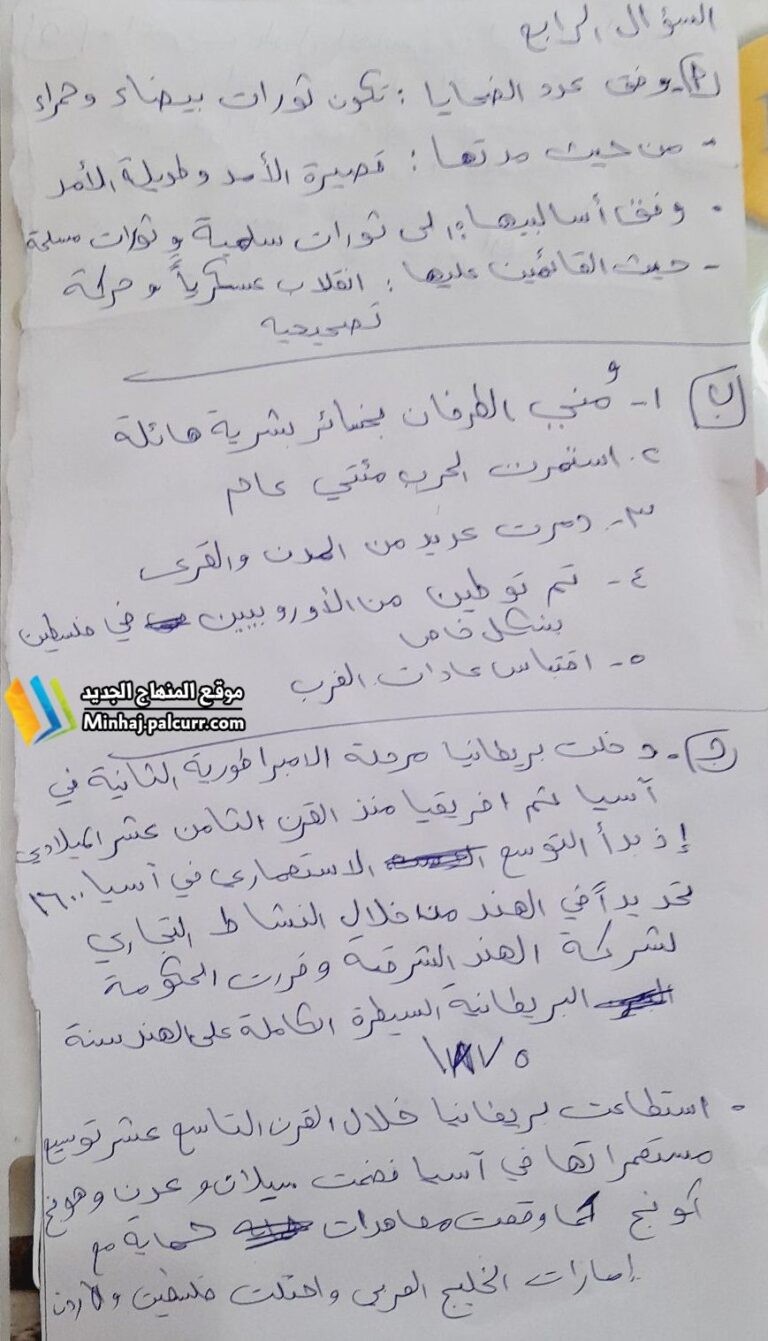 السؤال الرابع
أ- وفق عدد الضحايا : تكون ثورات بيضاء وحمراء
- من حيث مدتها : قصيرة الأمد وطويلة الأمد
- وفق أساليبها : إلى ثورات سلمية وثورات مسلحة
- حيث القائمين عليها : انقلاب عسكرياً وحركة
تصحيحيه
ب ١- ومُني الطرفان بخسائر بشرية هائلة
٢. استمرت الحرب مئتي عام
٣- دمرت عديد من المدن والقرى
٤- تم توطين من الأوروبيين في فلسطين
بشكل خاص
٥- اقتباس عادات الغرب
موقع المنهاج الجديد
Minhaj.palcurr.com
ج- دخلت بريطانيا مرحلة الامبراطورية الثانية في
آسيا ثم افريقيا منذ القرن الثامن عشر الميلادي
إذ بدأ التوسع الاستعماري في آسيا ١٦٠٠
تحديداً في الهند من خلال النشاط التجاري
لشركة الهند الشرقية وقررت الحكومة
البريطانية السيطرة الكاملة على الهند سنة
- استطاعت بريطانيا خلال القرن التاسع عشر توسيع
مستعمراتها في آسيا فضمت سيلان وعدن وهونج
كونج كما وقعت معاهدات حماية مع
إمارات الخليج العربي واحتلت فلسطين والأردن